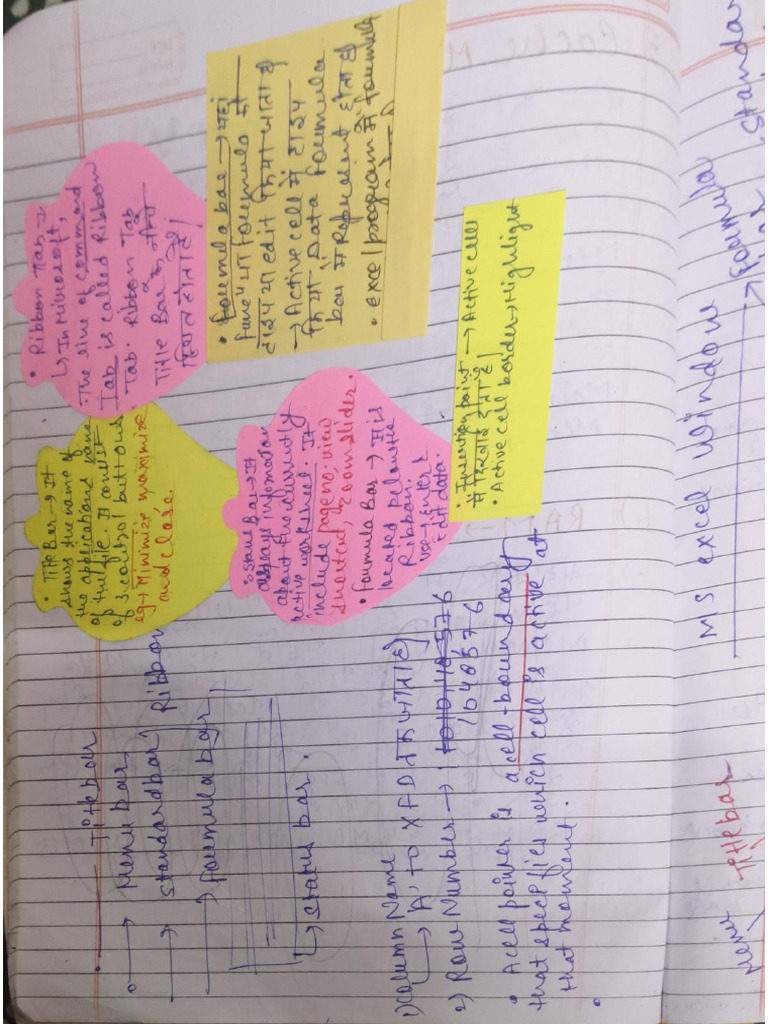 • Title bar
→ Menu bar
→ standardbar / Ribbon
→ formula bar
↳ status bar.
1) Column Name
→ A, to XFD तक जाता है
2) Row Number → 1048576
• A cell pointer is a cell-boundary
that specifies which cell is active at
that moment.
• Title Bar → It
shows the name of
the application and name
of the file. It consist
of 3 control buttons
eg → Minimize, maximize
and close.
• Ribbon Tab →
↳ In Microsoft,
The line of command
Tab is called Ribbon
Tab. Ribbon Tab
Title Bar के नीचे
स्थित होता है।
• Status Bar → It
displays information
about the currently
active worksheet. It
include page no, view
shortcut, zoom slider.
• Formula Bar → It is
located below the
Ribbon.
use → insert
Edit data.
• Formula bar → यहां
टाइप या edit किया जाता है
→ Active cell में टाइप
किया Data formula
bar में Represent होता है
• excel program में formula
• Insertion point → Active cell
में दिखाई देता है।
• Active cell border → Highlight
MS excel window
→ formula
Standa
Title bar